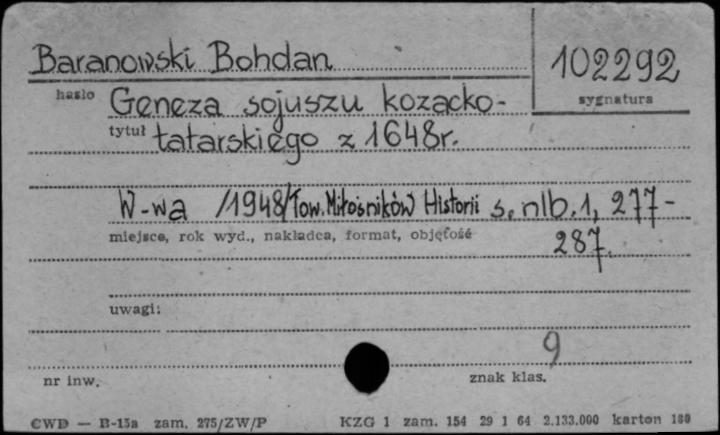 Baranowski Bohdan 102292
hasło sygnatura
Geneza sojuszu kozacko-
tytuł tatarskiego z 1648r.
W-wa /1948/Tow. Miłośników Historii s. nlb. 1, 277-
miejsce, rok wyd., nakładca, format, objętość 287.
uwagi:
9
nr inw. znak klas.
CWD — B-15a zam. 275/ZW/P KZG 1 zam. 154 29 1 64 2.133.000 karton 180